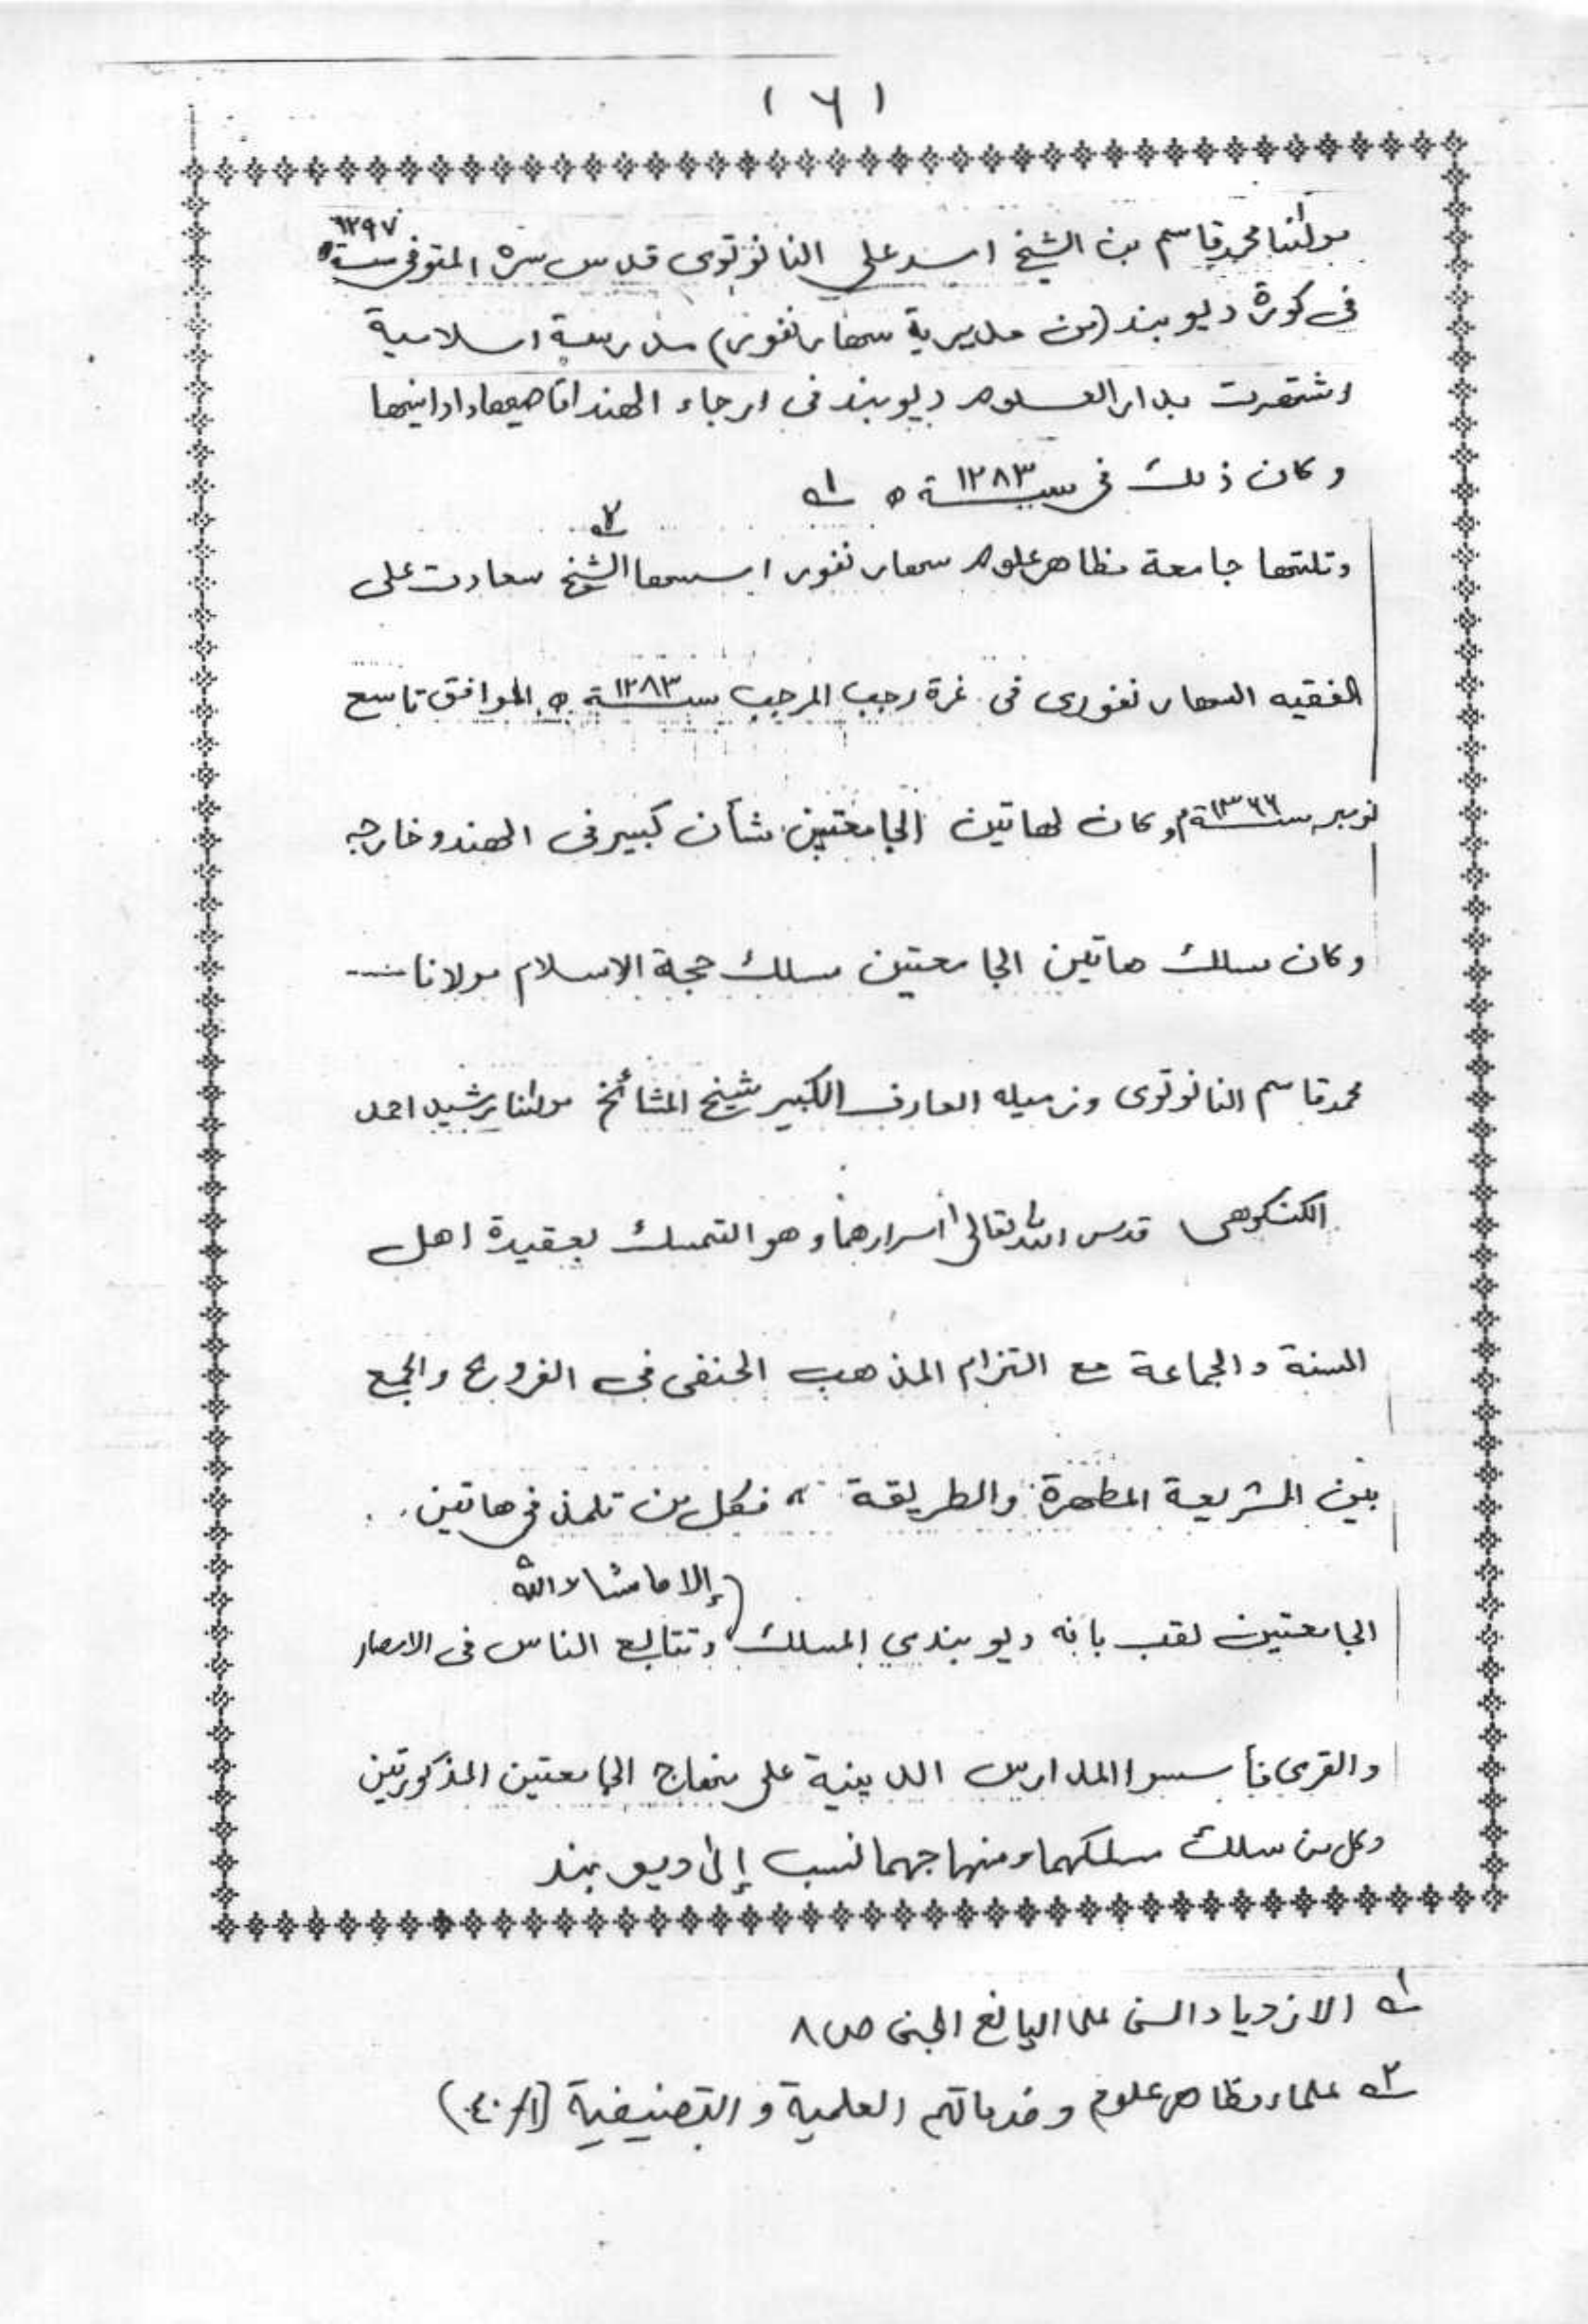 (٦)
مولٰنا محمد قاسم بن الشيخ اسد علي النانوتوى قدس سره المتوفى سنة ١٢٩٧ه
فى كورة ديوبند (من مديرية سهارنفور) مدرسة اسلامية
اشتهرت بدار العلوم ديوبند فى ارجاء الهند اقاصيها وادانيها
وكان ذلك فى سنة ١٢٨٣ه ١
وتلتها جامعة مظاهر علوم سهارنفور اسسها الشيخ ٢ سعادت على
الفقيه السهارنفورى فى غرة رجب المرجب سنة ١٢٨٣ه الموافق تاسع
نومبر سنة م وكان لهاتين الجامعتين شأن كبير فى الهند وخارجه
وكان مسلك هاتين الجامعتين مسلك حجة الاسلام مولانا
محمد قاسم النانوتوى وزميله العارف الكبير شيخ المشائخ مولٰنا رشيد احمد
الكنكوهى قدس الله تعالى أسرارهما وهو التمسك بعقيدة اهل
السنة والجماعة مع التزام المذهب الحنفى فى الفروع والجمع
بين الشريعة المطهرة والطريقة، فكل من تلمذ فى هاتين
إلا ما شاء الله
الجامعتين لقب بانه ديوبندى المسلك وتتابع الناس فى الامصار
والقرى فأسسوا المدارس الدينية على منهاج الجامعتين المذكورتين
وكل من سلك مسلكهما ومنهاجهما نسب إلى ديوبند
١ الازدياد السنى على اليانع الجنى ص ٨
٢ علماء مظاهر علوم وخدماتهم العلمية والتصنيفية (١/٤٠)